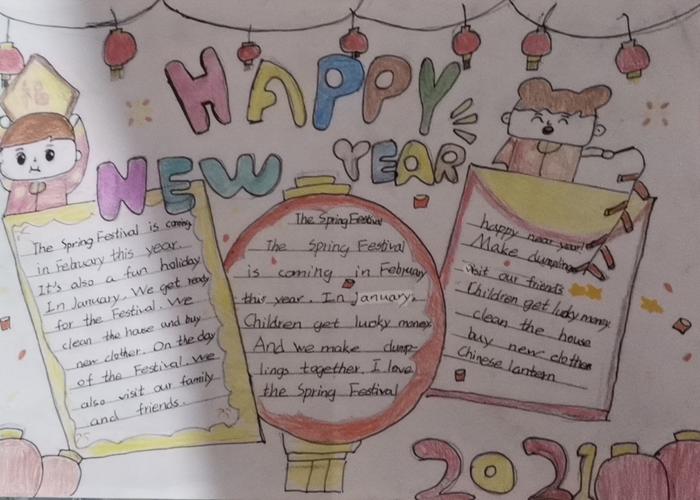 HAPPY
NEW YEAR
福
The Spring Festival is coming
in February this year.
It's also a fun holiday
In January. We get ready
for the Festival. We
clean the house and buy
new clother. On the day
of the Festival. We
also visit our family
and friends.
The Spring Festival
The Spring Festival
is coming in February
this year. In January.
Children get lucky money.
And we make dump-
lings together. I love
the Spring Festival
happy new year!
Make dumplings
visit our friends
Children get lucky money
clean the house
buy new clother
Chinese lantern
2021